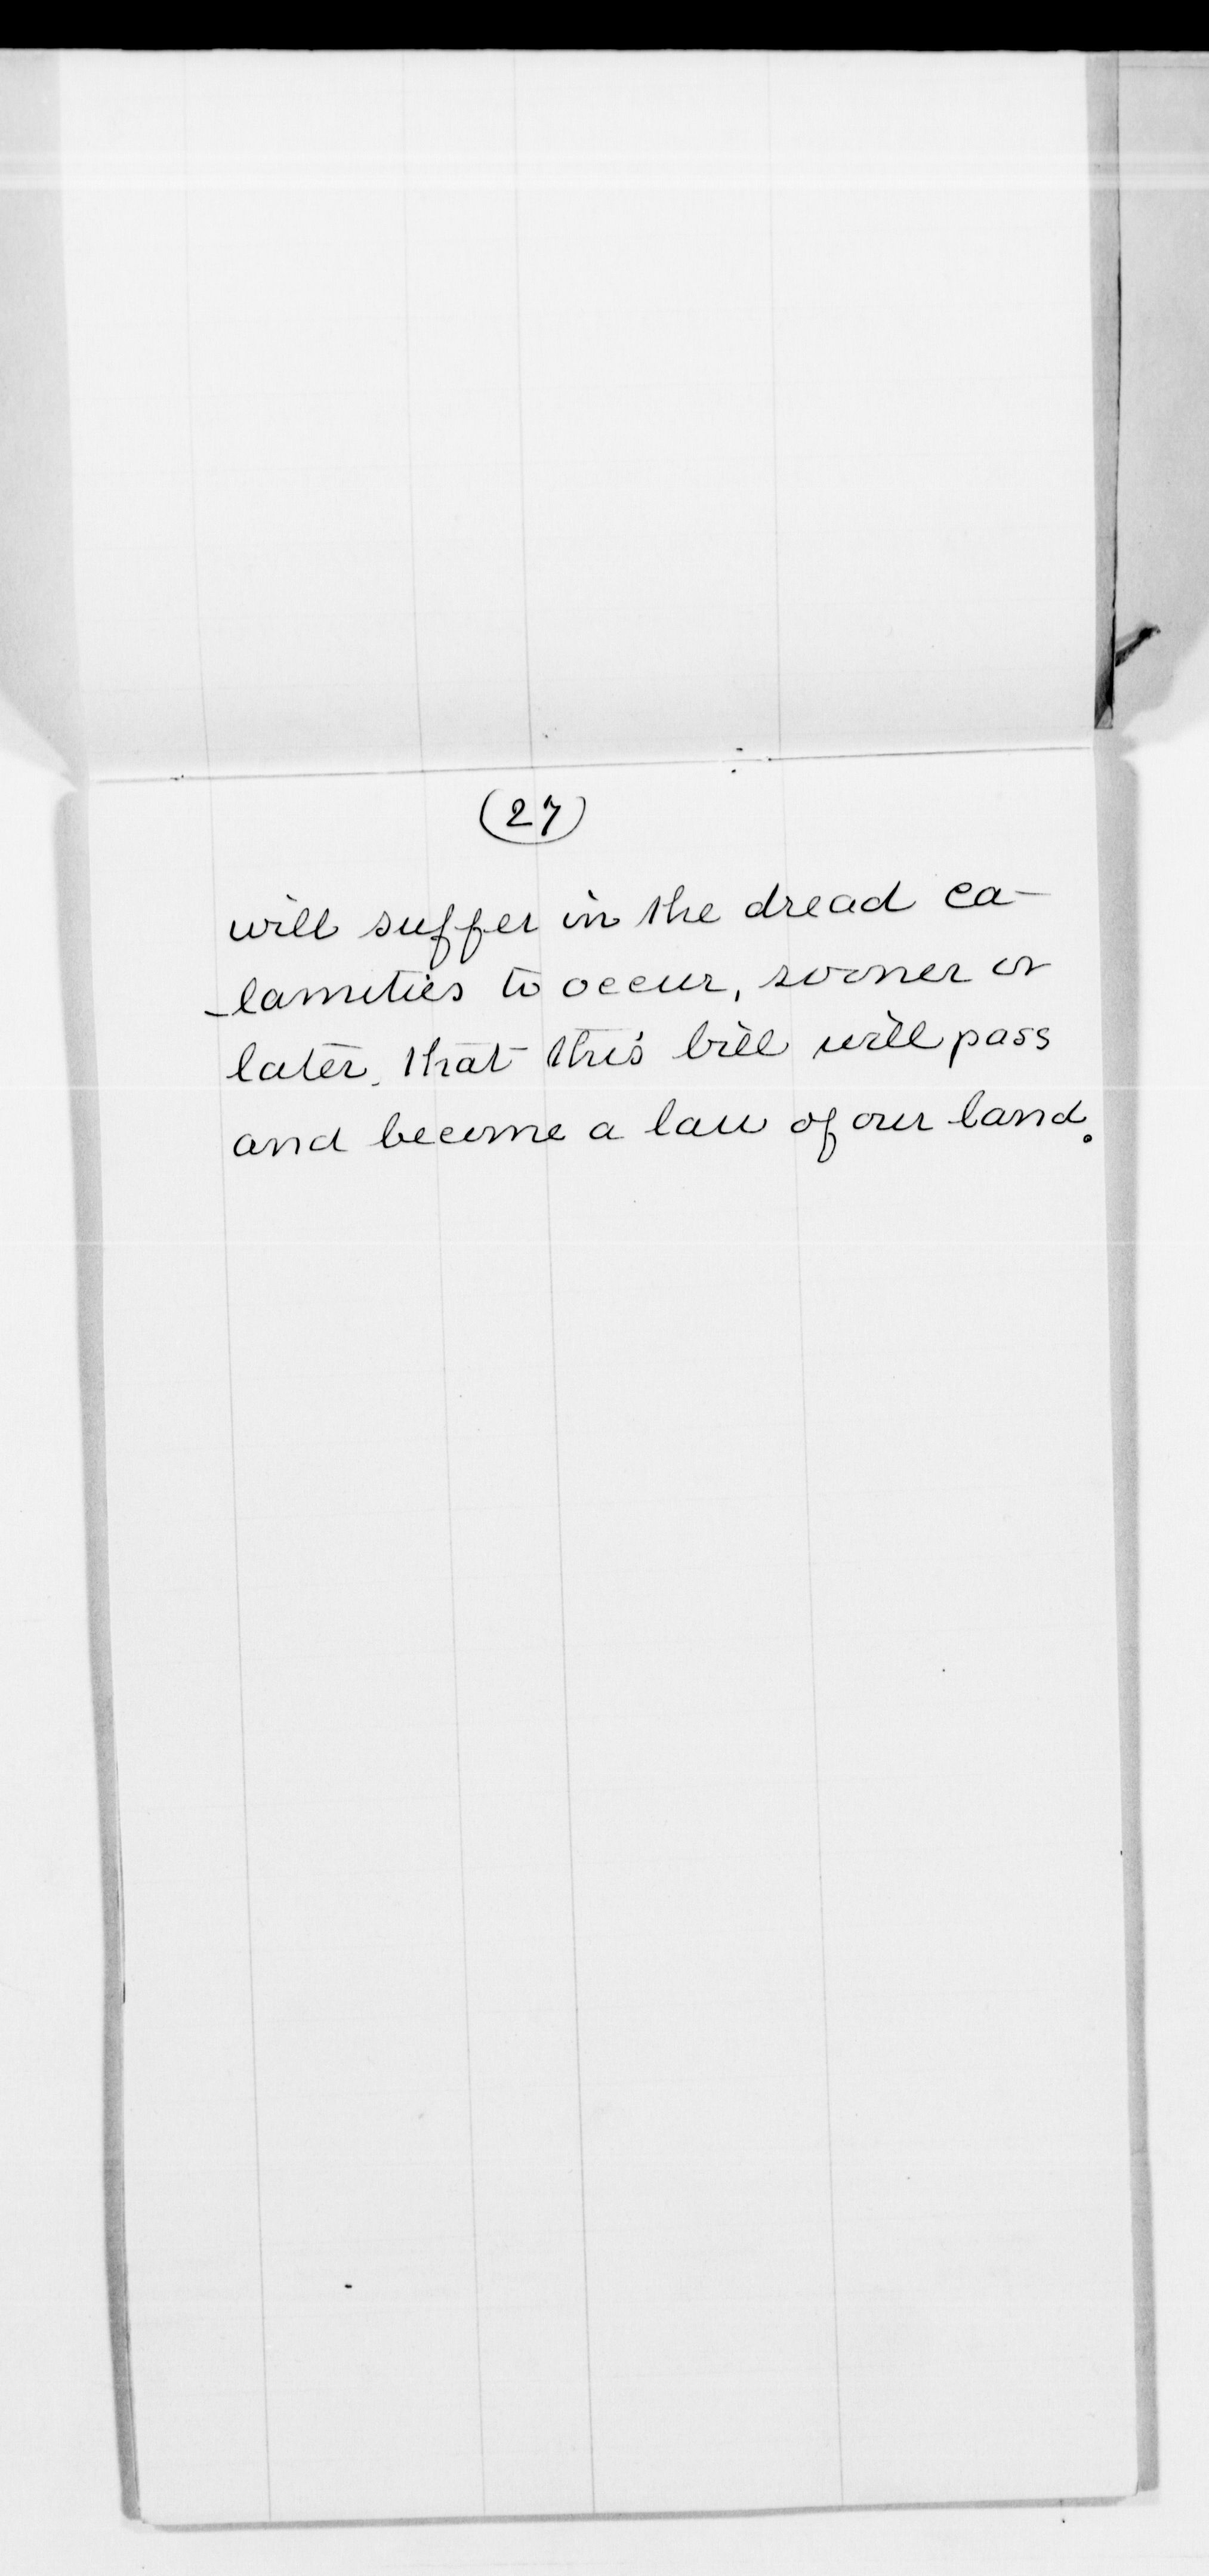 (27)
will suffer in the dread ca-
-lamities to occur, sooner or
later, that this bill will pass
and become a law of our land.